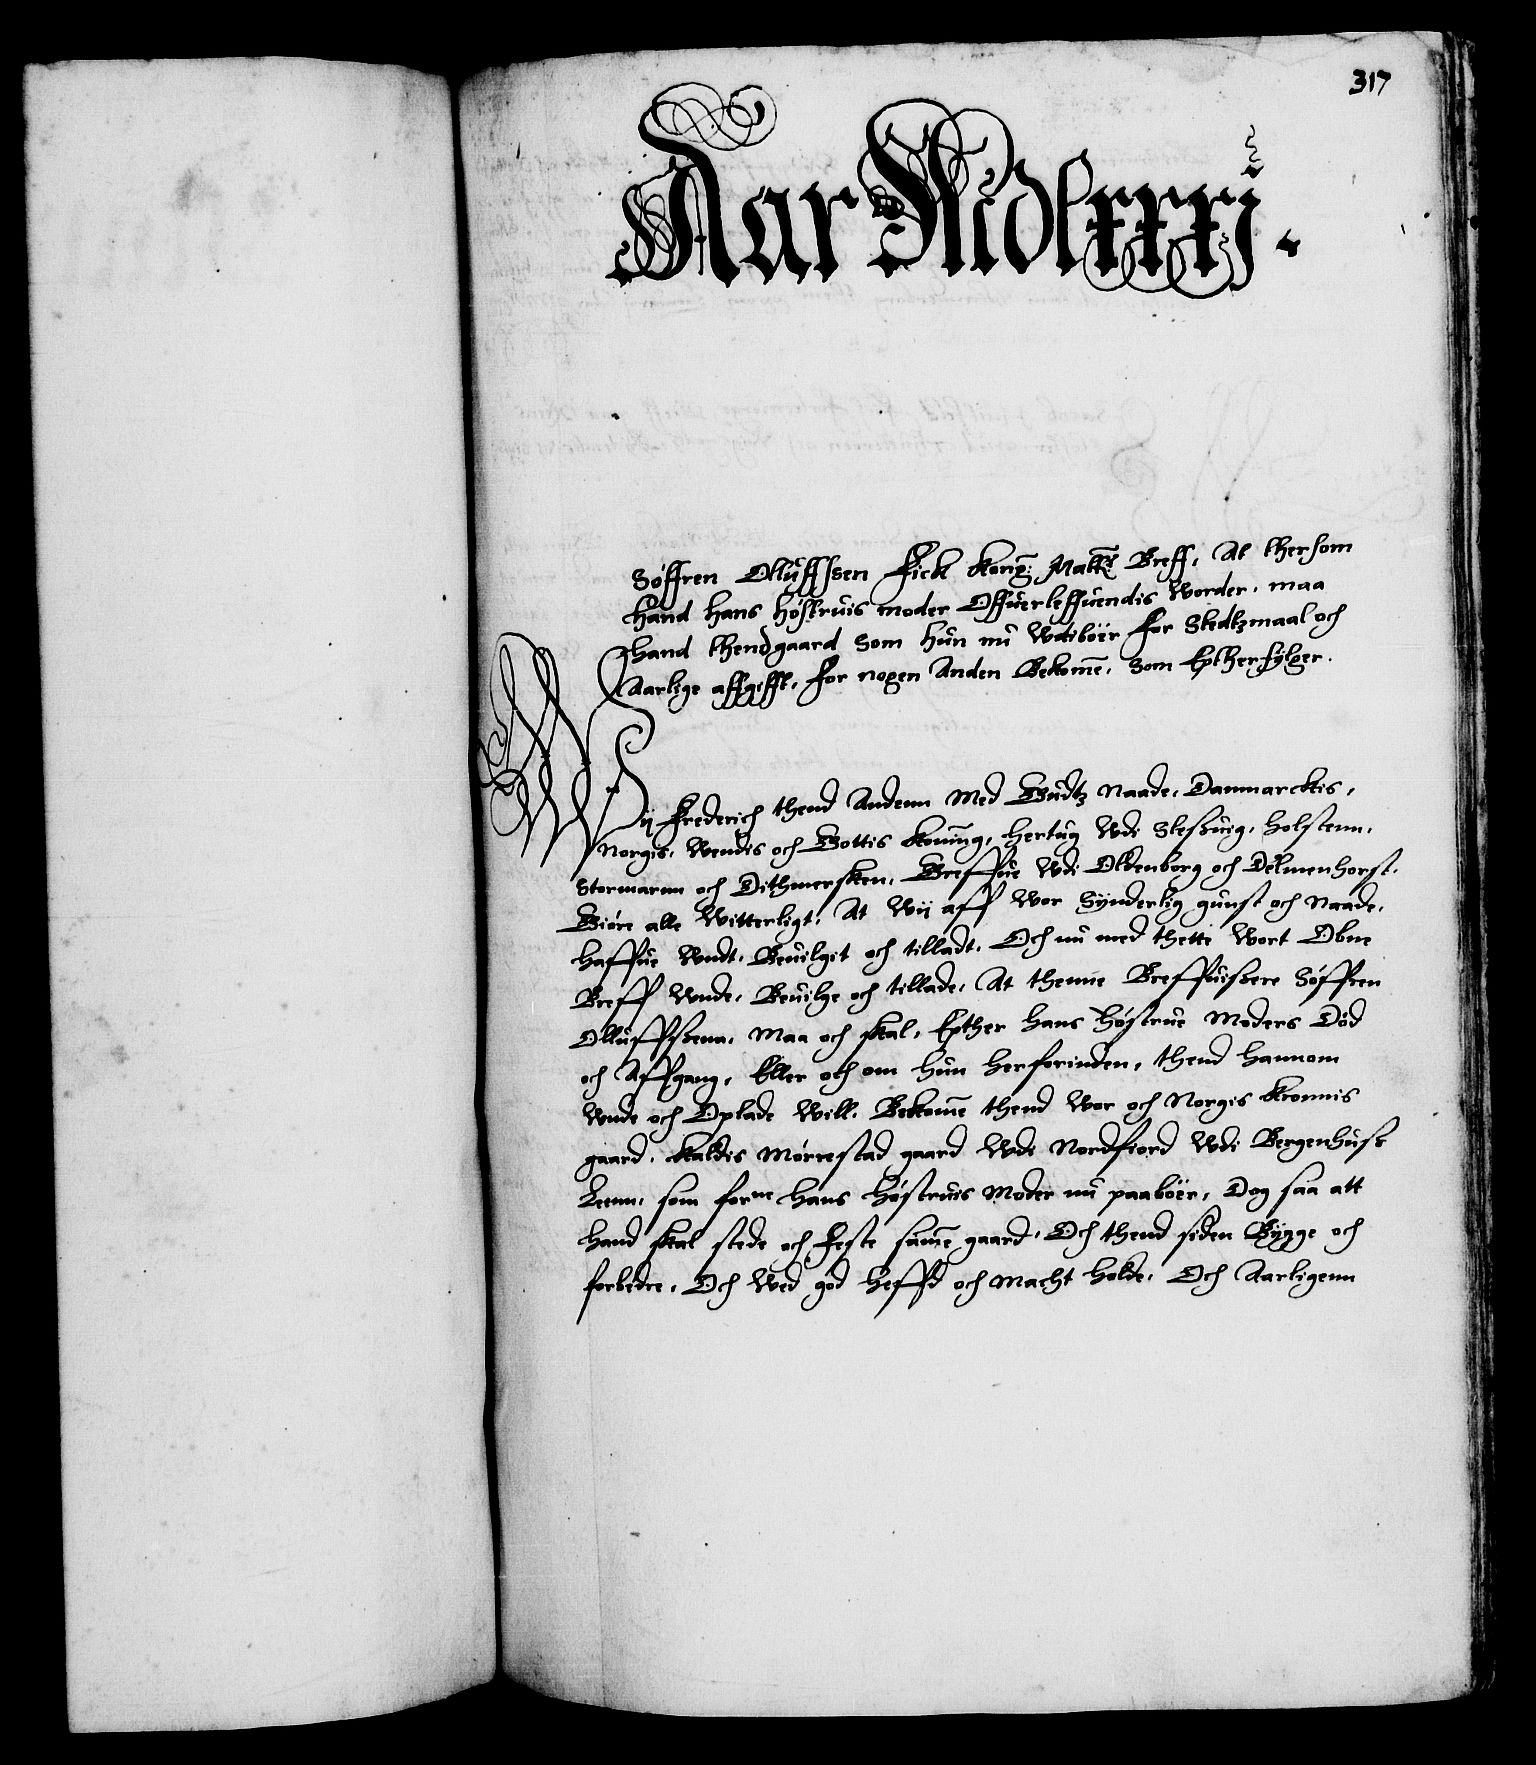 317
Aar Mdlxxxj.
Søffren Olluffssen Fick Kong: Matts: Breff, At thersom
hand hans høstruis moder Offuerleffuendis worder, maa
hand thend gaard som hun nu wdiboer for Stedtzmaal och
Aarlige affgifft, for nogen Anden Bekomē, som Eptherfylger.
Wij Frederich thend Andenn Med Gudtz Naade, Danmarckis,
Norgis, Wendis och Gottis Konning, hertug Wdi Slesßuig, holstenn,
Stormarnn och Dithmersken, Greffue Wdi Oldenborg och Delmenhorst.
Giøre alle Witterligt, At Wij aff Wor Synderlig gunst och Naade,
haffue Wndt, Beuilgit och tilladt, Och nu med thette Wort Obne
Breff Wnde, Beuilge och tillade, At thenne Breffuißere Søffren
Olluffsßenn, Maa och skal, Epther hans høstrue Moders Død
och Affgang, Eller och om hun herforinden, thend hannom
Wnde och Oplade Will, Bekomē thend Wor och Norgis Kronnis
gaard, Kaldis Mørrestad gaard Wdi Nordfiord Wdi Bergenhuss
Leenn, som forne hans høstruis Moder nu paaboer, Dog saa att
hand skal stede och Feste samē gaard, Och thend siden Bygge och
forbedre, Och Wed god heffd och Macht holde, Och Aarligenn